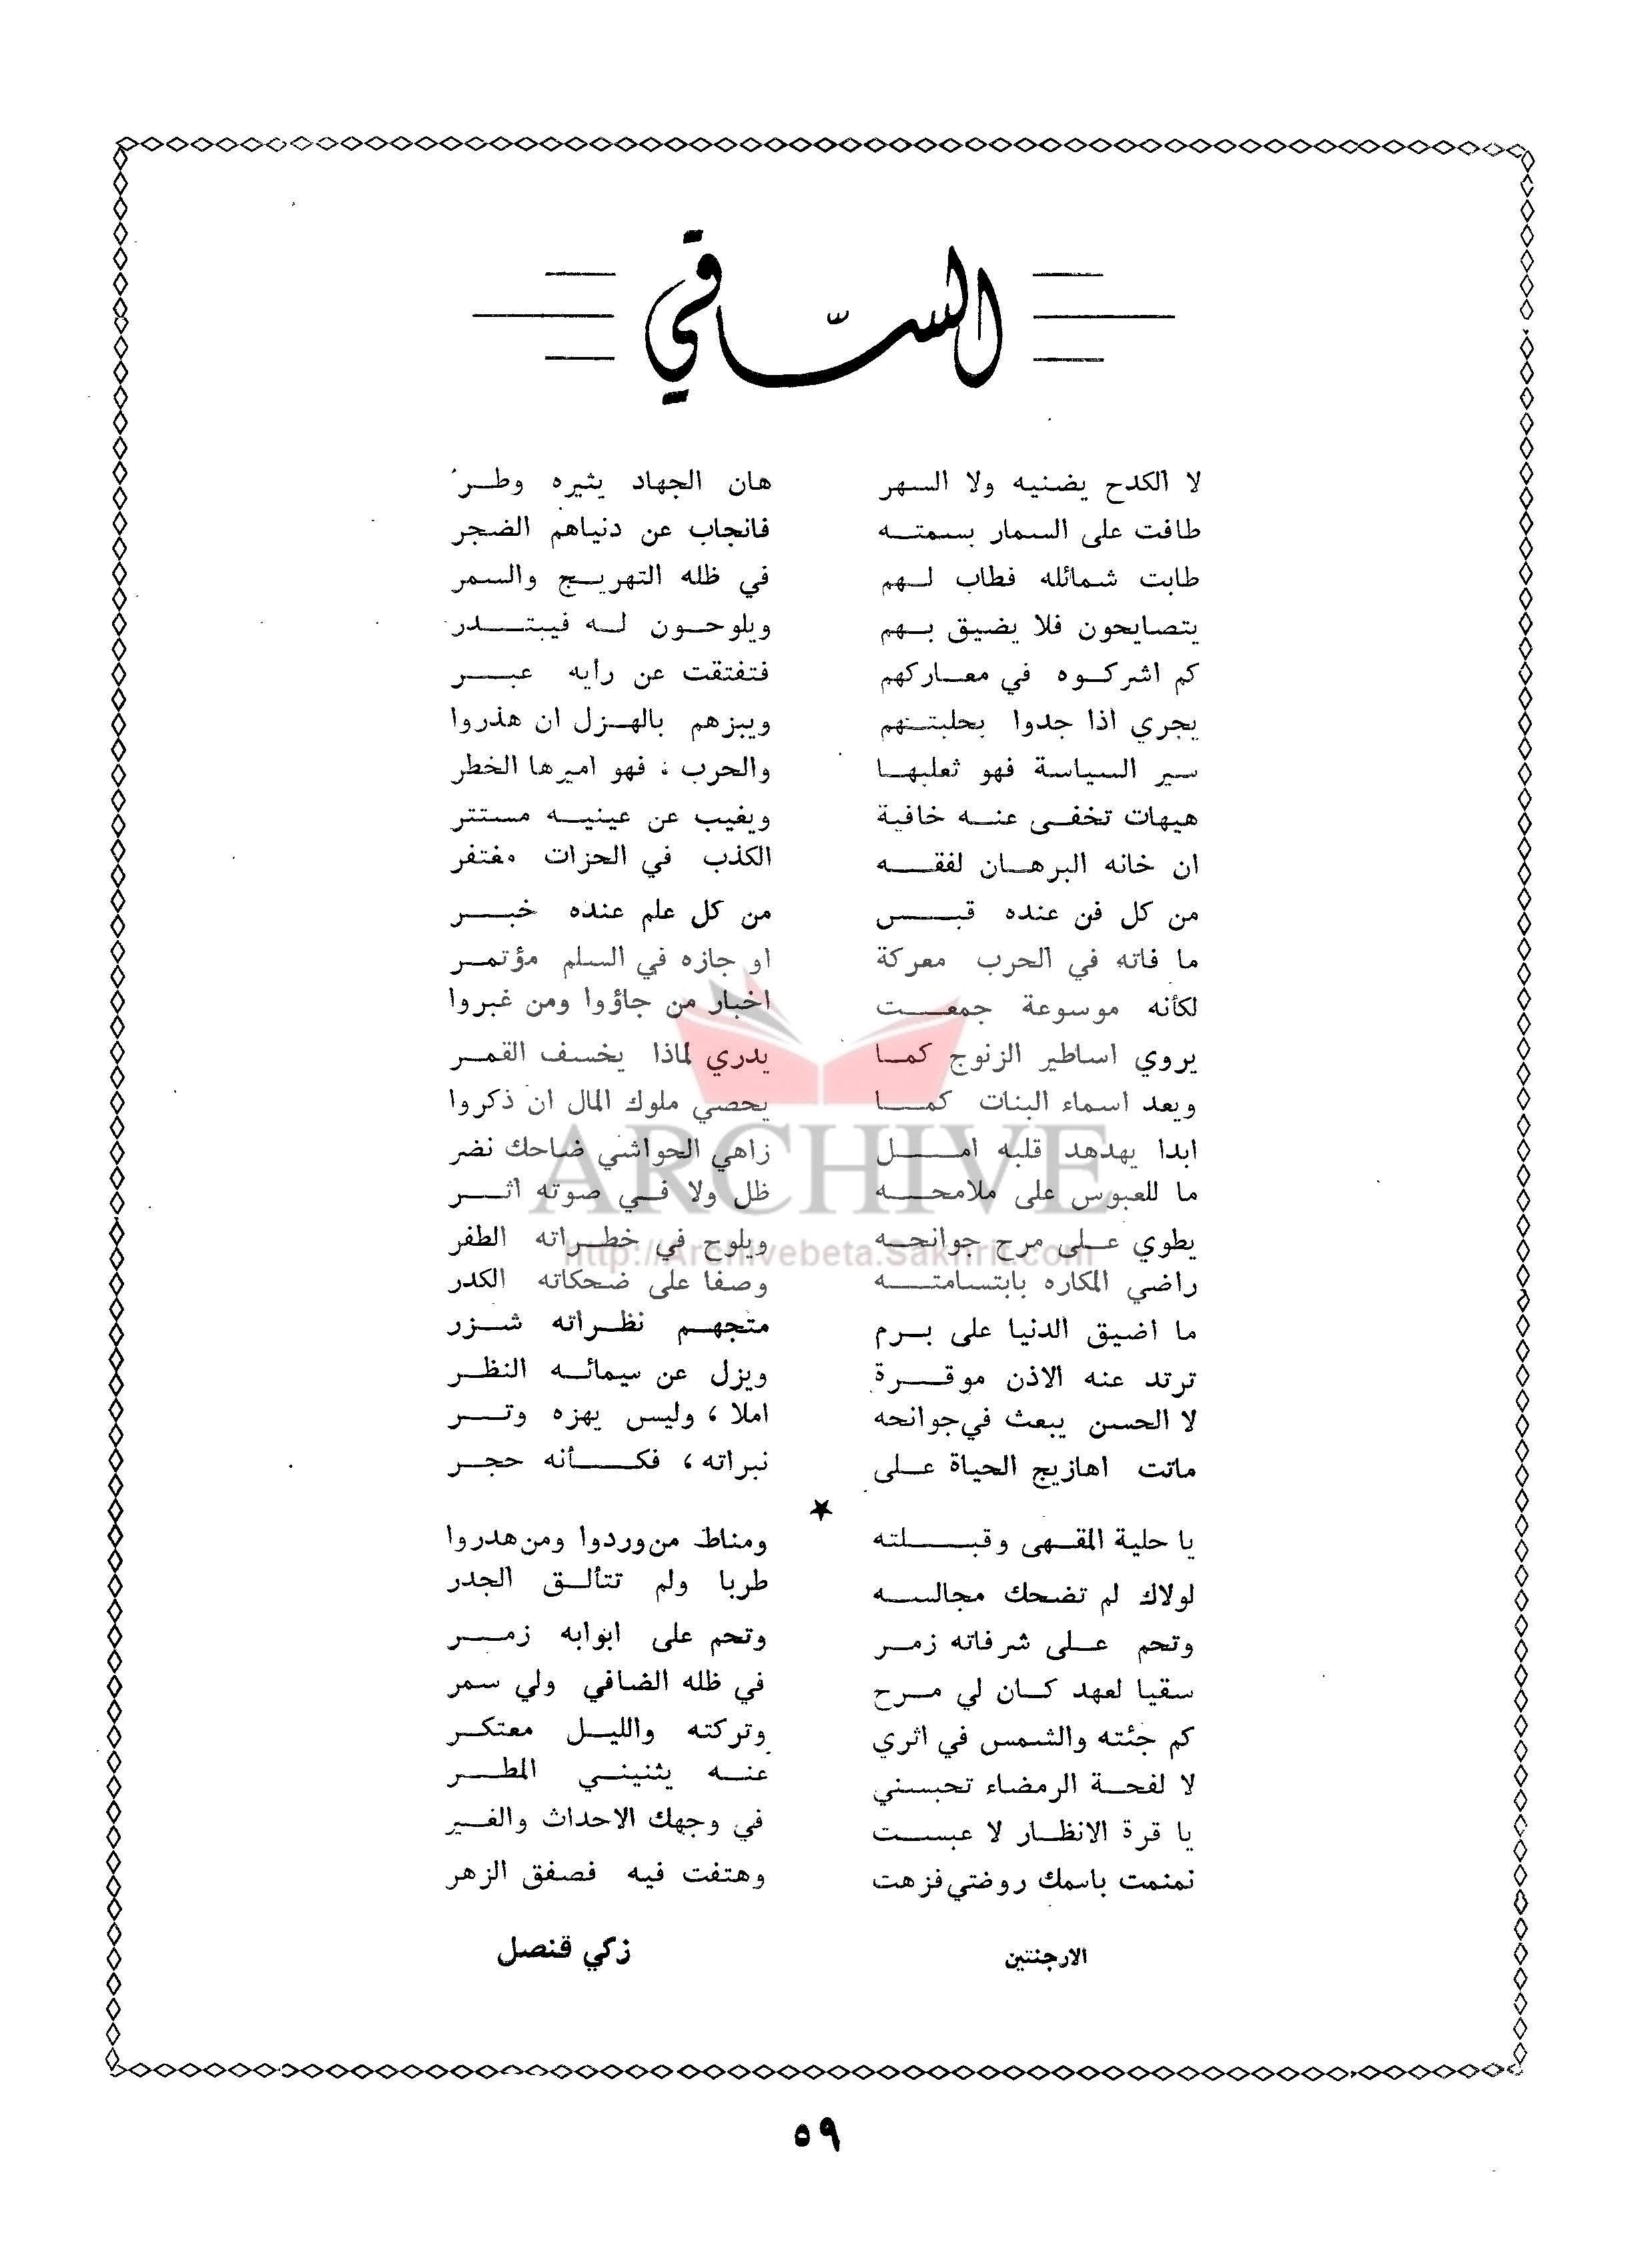 السّاقي
لا الكدح يضنيه ولا السهر هان الجهاد يثيره وطر
طافت على السمار بسمته فانجاب عن دنياهم الضجر
طابت شمائله فطاب لهم في ظله التهريج والسمر
يتصايحون فلا يضيق بهم ويلوحون له فيبتدر
كم اشركوه في معاركهم فتفتقت عن رأيه عبر
يجري اذا جدوا بحلبتهم ويبزهم بالهزل ان هذروا
سير السياسة فهو ثعلبها والحرب ، فهو اميرها الخطر
هيهات تخفى عنه خافية ويغيب عن عينيه مستتر
ان خانه البرهان لفقه الكذب في الحزات مغتفر
من كل فن عنده قبس من كل علم عنده خبر
ما فاته في الحرب معركة او جازه في السلم مؤتمر
لكأنه موسوعة جمعت اخبار من جاؤوا ومن غبروا
يروي اساطير الزنوج كما يدري لماذا يخسف القمر
ويعد اسماء البنات كما يحصي ملوك المال ان ذكروا
ابدا يهدهد قلبه امل زاهي الحواشي ضاحك نضر
ما للعبوس على ملامحه ظل ولا في صوته اثر
يطوي على مرح جوانحه ويلوح في خطراته الظفر
راضي المكاره بابتسامته وصفا على ضحكاته الكدر
ما اضيق الدنيا على برم متجهم نظراته شزر
ترتد عنه الاذن موقرة ويزل عن سيمائه النظر
لا الحسن يبعث في جوانحه املا ، وليس يهزه وتر
ماتت اهازيج الحياة على نبراته ، فكأنه حجر
★
يا حلية المقهى وقبلته ومناط من وردوا ومن هدروا
لولاك لم تضحك مجالسه طربا ولم تتألق الجدر
وتحم على شرفاته زمر وتحم على ابوابه زمر
سقيا لعهد كان لي مرح في ظله الضافي ولي سمر
كم جئته والشمس في اثري وتركته والليل معتكر
لا لفحة الرمضاء تحبسني عنه يثنيني المطر
يا قرة الانظار لا عبست في وجهك الاحداث والغير
نمنمت باسمك روضتي فزهت وهتفت فيه فصفق الزهر
الارجنتين زكي قنصل
٥٩
ARCHIVE
http://Archivebeta.Sakhrit.com